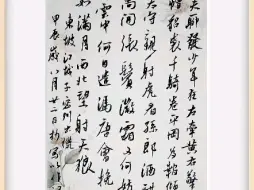 夫聊發少年狂左牽黃右擎
帽貂裘千騎卷平岡為報傾
太守親射虎看孫郎酒酣
尚開張鬢微霜又何妨
雲中何日遣馮唐會挽
如滿月西北望射天狼
東坡江城子密州出獵
甲辰歲八月廿日於